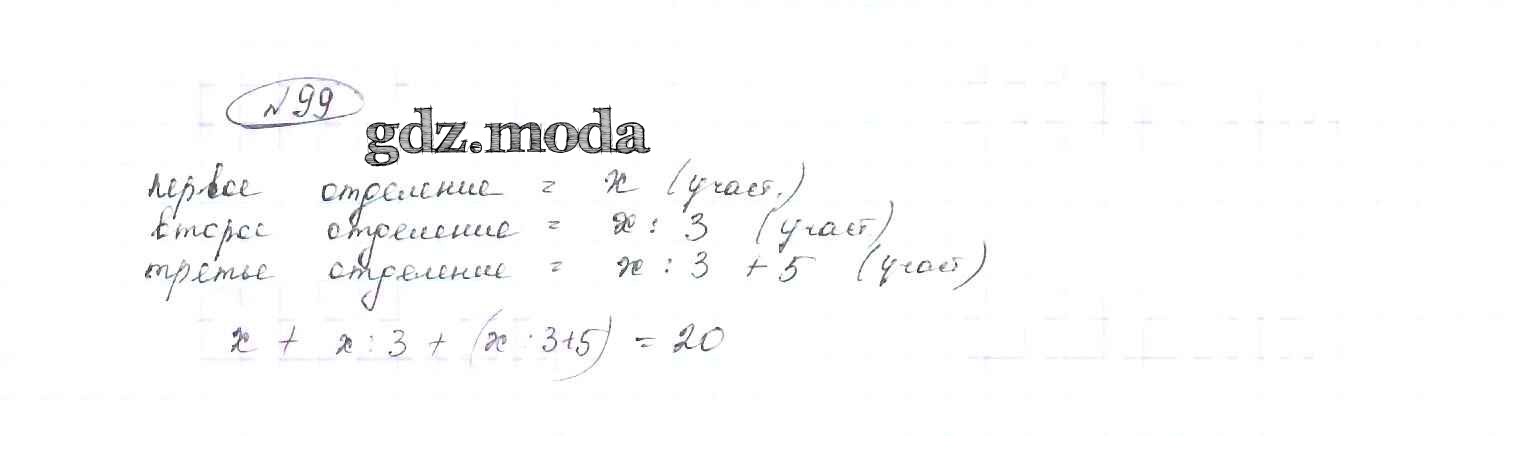 № 99
gdz.moda
первое отделение = x (участ.)
второе отделение = x : 3 (участ)
третье отделение = x : 3 + 5 (участ)
x + x : 3 + (x · 3+5) = 20